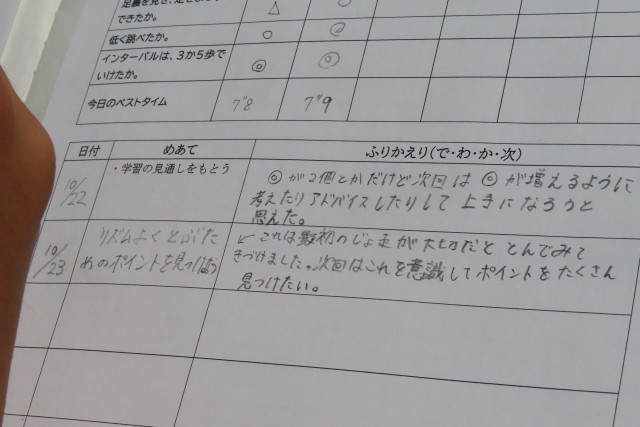 できたか。 △ ○
低く跳べたか。 ○ ◎
インターバルは、3から5歩で
いけたか。 ◎ ◎
今日のベストタイム 7"8 7"9
日付 めあて ふりかえり(で・わ・か・次)
10/22 ・学習の見通しをもとう
◎が2個とかだけど次回は◎が増えるように
考えたりアドバイスしたりして上手になろうと
思えた。
10/23 リズムよくとぶた
めのポイントを見つけよう
↙これは最初のじょ走が大切だととんでみて
きづけました。次回はこれを意識してポイントをたくさん
見つけたい。